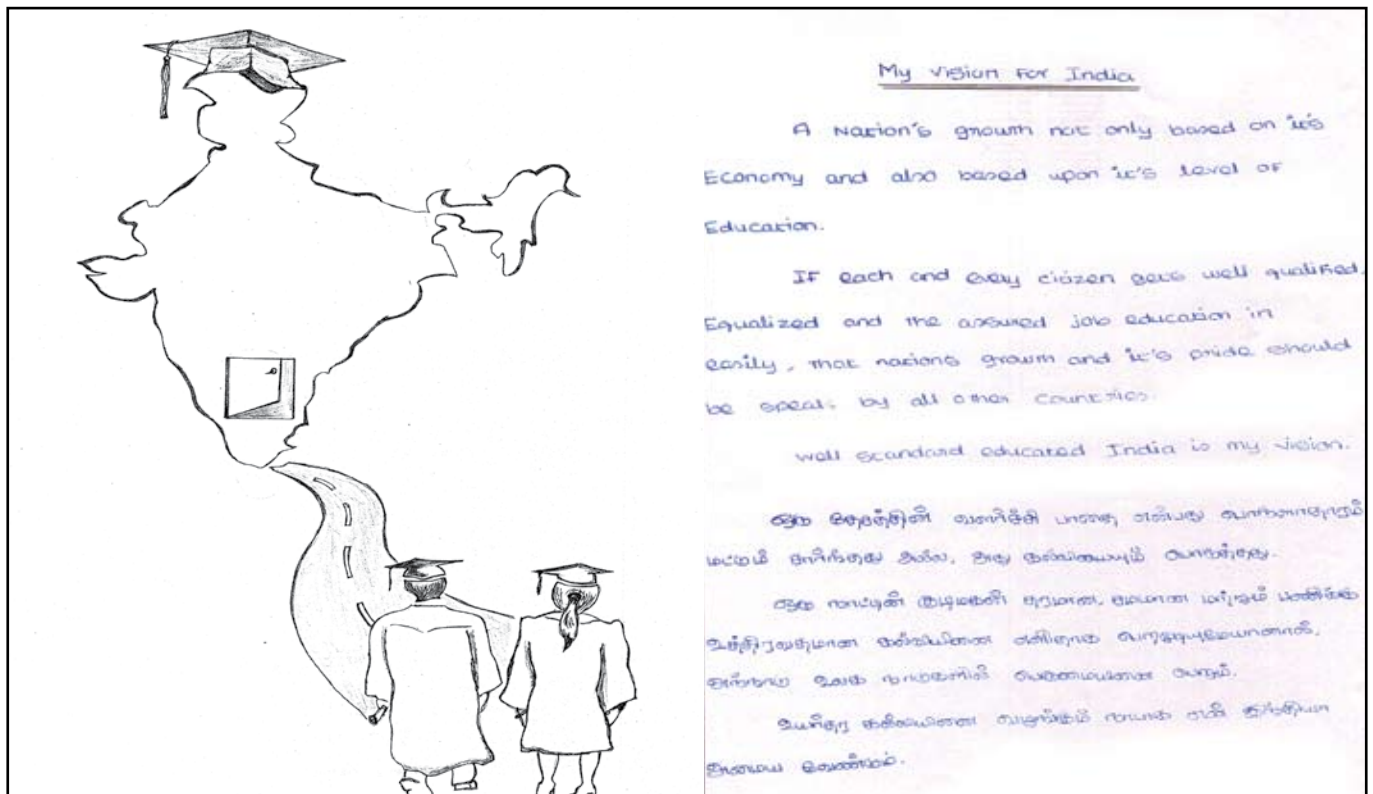 My Vision For India
A Nation's growth not only based on it's
Economy and also based upon it's level of
Education.
If each and every citizen gets well qualified,
Equalized and the assured job education in
easily, that nations growth and it's pride should
be speak by all other countries.
Well standard educated India is my vision.
ஒரு தேசத்தின் வளர்ச்சி பாதை என்பது பொருளாதாரம்
மட்டும் சார்ந்தது அல்ல, அது கல்வியையும் பொருத்தது.
ஒரு நாட்டின் குடிமகன் தரமான, சமமான மற்றும் பணிக்கு
உத்திரவாதமான கல்வியினை எளிதாக பெறமுடியுமேயானால்,
அந்நாடு உலக நாடுகளில் பெருமையினை பெறும்.
உயர்தர கல்வியினை வழங்கும் நாடாக என் இந்தியா
அமைய வேண்டும்.